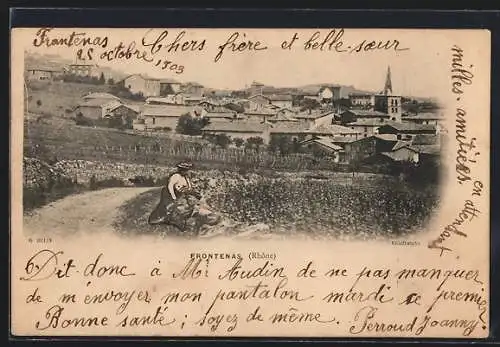 Frantenas
25 octobre 1903
Chers frère et belle-sœur
milles amitiés
en attendant
FRONTENAS (Rhône)
Dit donc à Mr Audin de ne pas manquer
de m'envoyer mon pantalon mardi le premier
Bonne santé ; soyez de même. Perroud Joanny